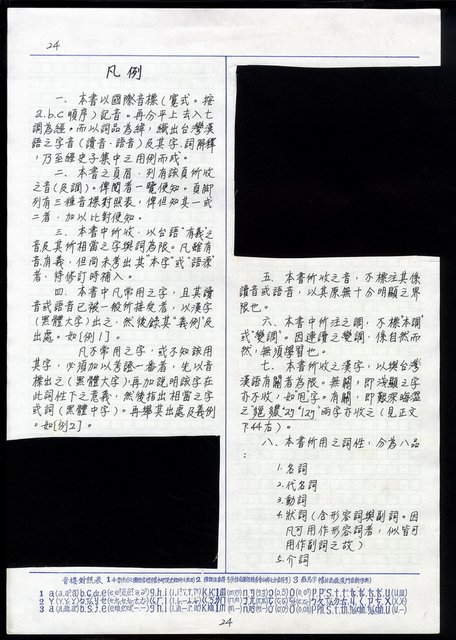 24
凡例
一、本書以國際音標(寬式。按
a.b.c順序)記音。再分平上去入七
調為經。而以詞品為緯，織出台灣漢
語之字音(讀音、語音)及其字、詞解釋
，乃至經史子集中之用例而成。
二、本書之頁眉，列有該頁所收
之音(及調)。俾閱者一覽便知。頁腳
列有三種音標對照表，俾但知其一或
二者，加以比對便知。
三、本書中所收，以台語"有義"之
音及其所相當之字與詞為限。凡雖有
音有義，但尚未考出其"本字"或"語源"
者，待修訂時補入。
四、本書中凡常用之字，且其讀
音或語音已被一般所接受者，以漢字
(黑體大字)出之，然後錄其"義例"及
出處。如[例1]。
凡不常用之字，或不知該用
其字，必須加以考證一番者，先以音
標出之(黑體大字)再加說明該字在
此詞性下之意義，然後指出相當之字
或詞(黑體中字)。再舉其出處及義例
。如[例2]。
五、本書所收之音，不標注其係
讀音或語音，以其原無十分明顯之界
限也。
六、本書中所注之調，不標"本調"
或"變調"。因連讀之變調，係自然而
然，無須學習也。
七、本書所收之漢字，以與台灣
漢語有關者為限。無關，即淺顯之字
亦不收，如"甩"字。有關，即艱深晦澀
之
兩字亦收之(見正文
P44右)。
八、本書所用之詞性，分為八品
：
1.名詞
2.代名詞
3.動詞
4.狀詞(含形容詞與副詞。因
凡可用作形容詞者，似皆可
用作副詞之故)
5.介詞
音標對照表
24